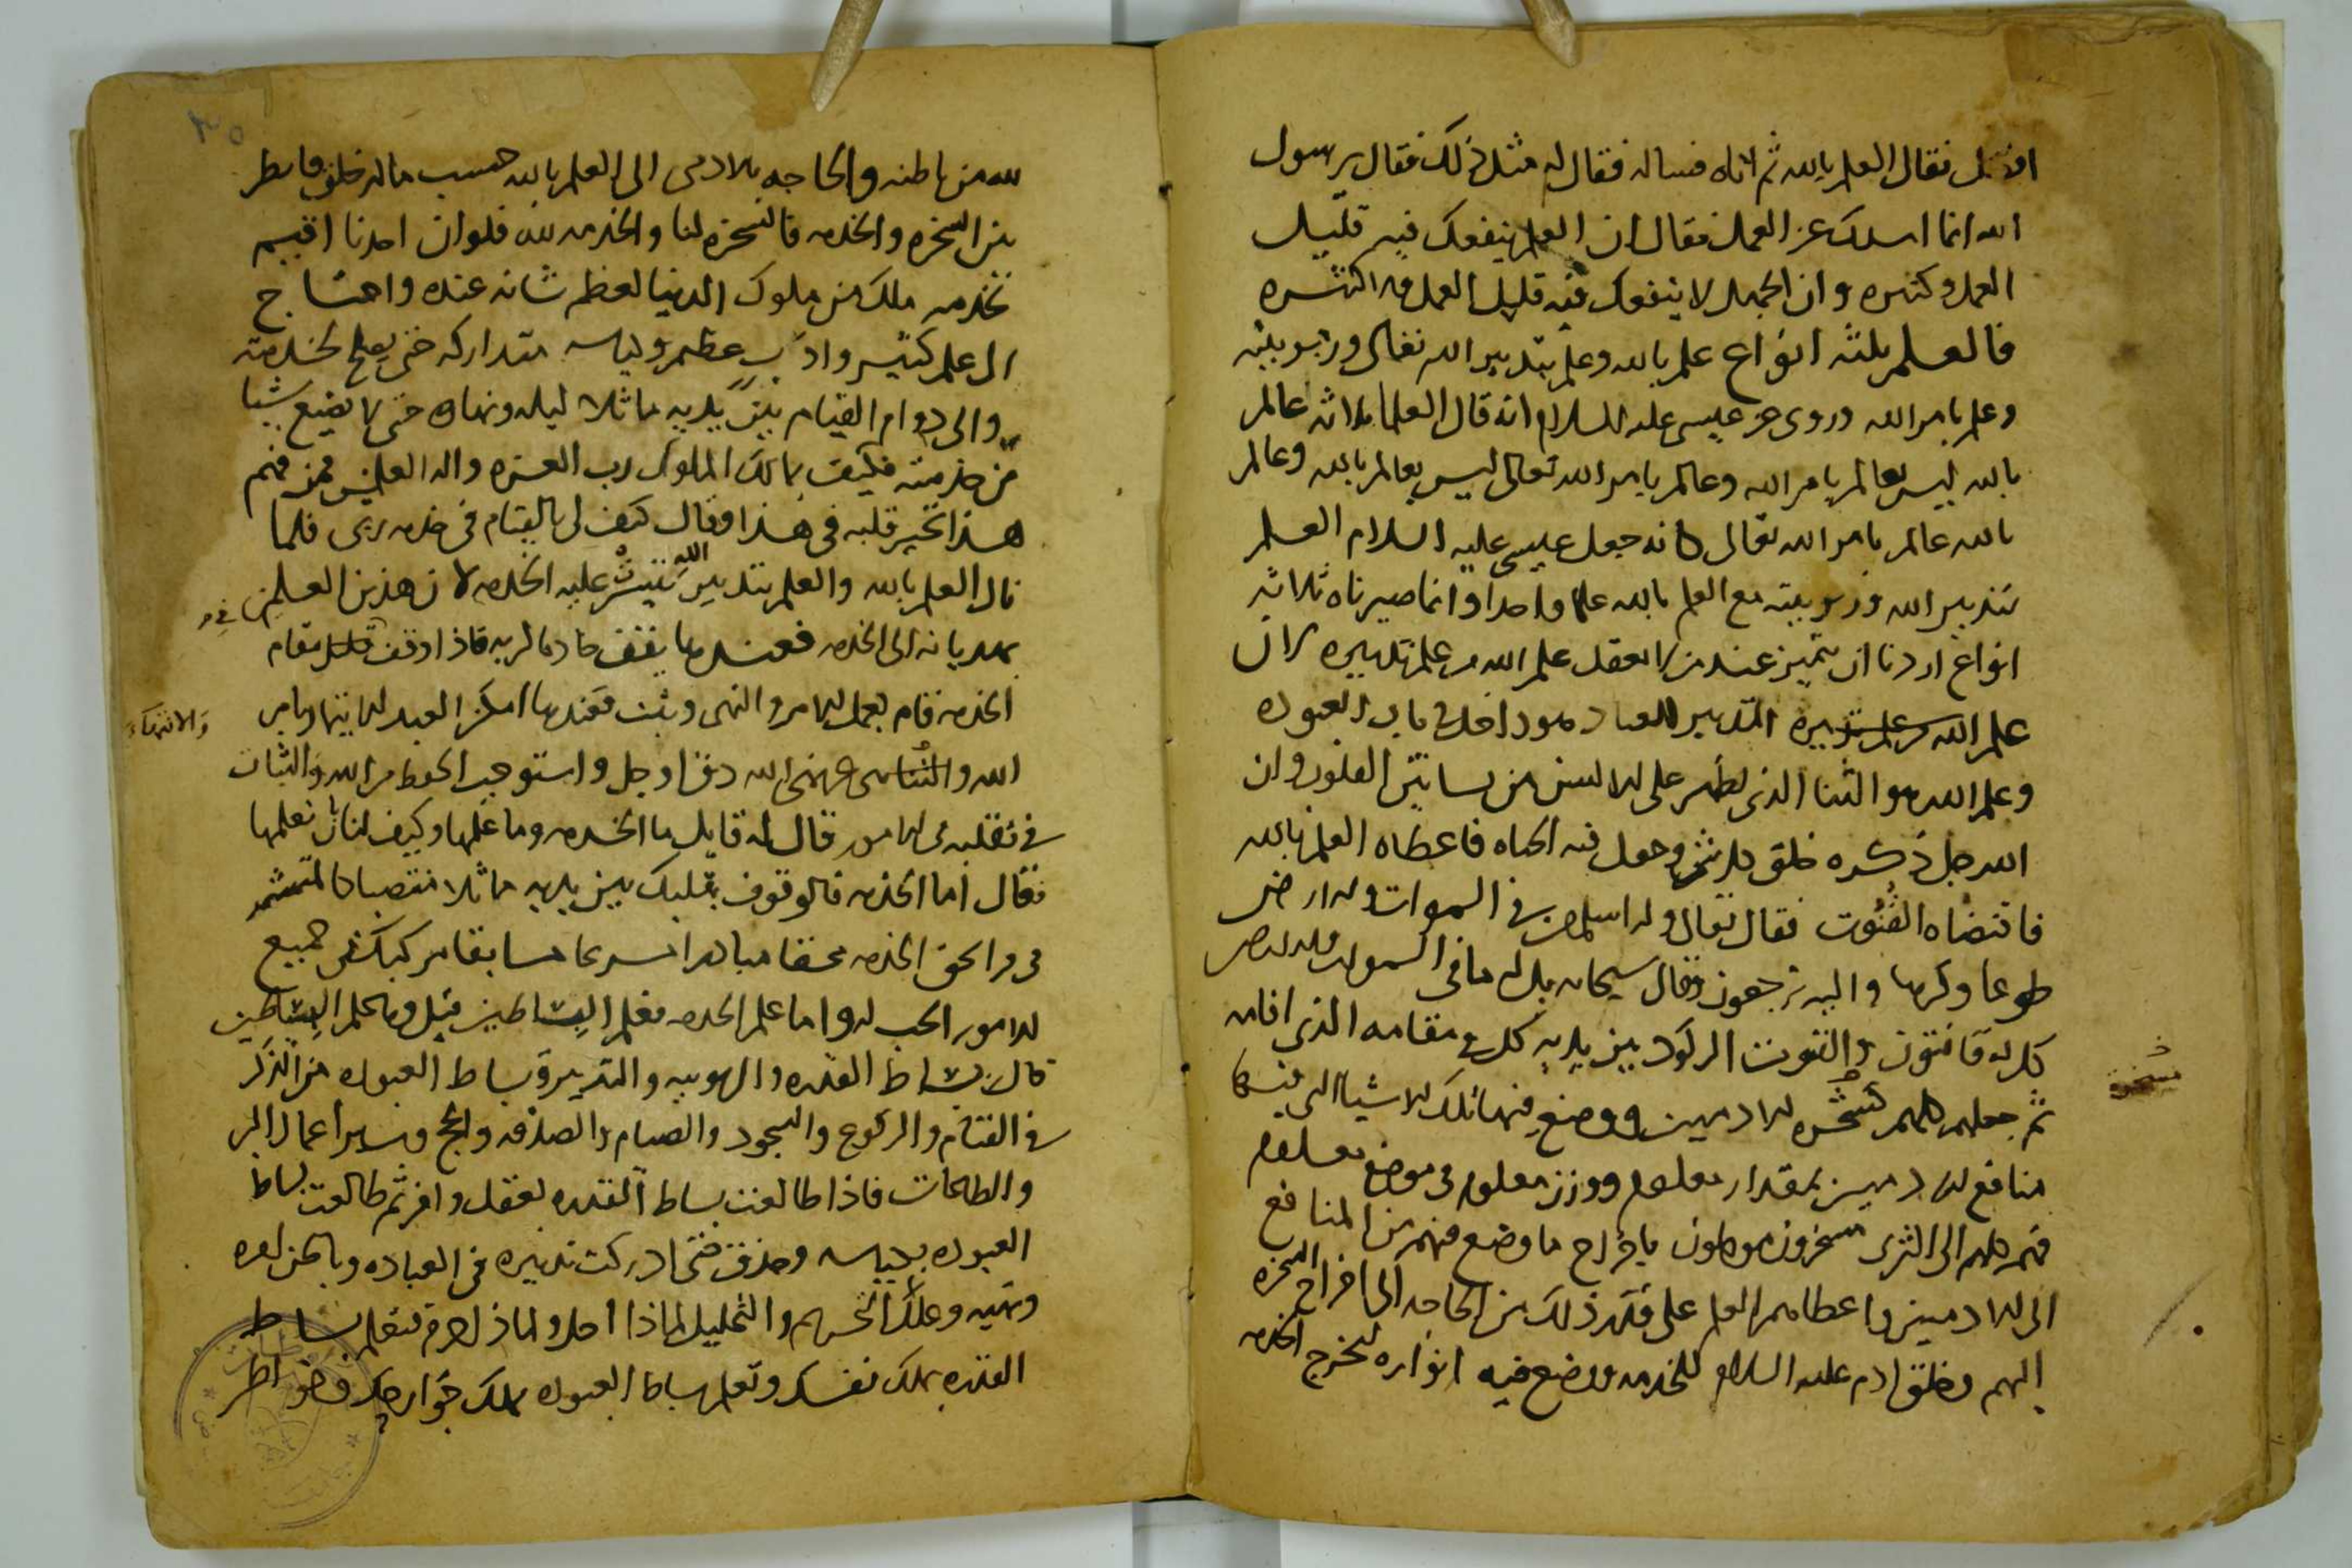 افضل فقال العلم بالله ثم اتاه فساله فقال له مثل ذلك فقال يرسول
الله انما اسلك عن العمل فقال ان العلم ينفعك فيه قليل
العمل وكثيره وان الجهل لا ينفعك فيه قليل العمل ولا كثيره
فالعلم ثلثه انواع علم بالله وعلم بتدبير الله تعالى وربوبيته
وعلم بامر الله وروى عن عيسى عليه السلام انه قال العلما ثلاثه عالم
بالله ليس بعالم بامر الله وعالم بامر الله تعالى ليس بعالم بالله وعالم
بالله عالم بامر الله تعالى كانه جعل عيسى عليه السلام العلم
بتدبير الله وربوبيته مع العلم بالله علما واحدا وانما صيرناه ثلاثه
انواع اردنا ان نميز عند من العقل علم الله من علم تدبيره لان
علم الله من علم تدبيره التدبير للعباد هو داخل في باب العبوده
وعلم الله هو الثنا الذي يظهر على الالسن من بساتين القلوب وان
الله جل ذكره خلق كل شي وجعل فيه الحياه فاعطاه العلم بالله
فاقتضاه القنوت فقال تعالى وله اسلم من في السموات والارض
طوعا وكرها واليه ترجعون وقال سبحانه بل له ما في السموات والارض
كل له قانتون والقنوت الركود بين يديه كل في مقامه الذي اقامه
ثم جعلهم كلهم سخره للادميين ووضع فيها تلك الاشيا التي فيها
سخرة
منافع الادميين بمقدار معلوم ووزن معلوم في موضع معلوم
فهم كلهم الى الثرى مسخرون موكلون باخراج ما وضع فيهم من المنافع
الى الادميين واعطاهم العلم على قدر ذلك من الحاجه الى اخراج السخره
اليهم وخلق ادم عليه السلام للخدمه ووضع فيه انواره لتخرج الخدمه
لله من باطنه والحاجه بالادمي الى العلم بالله حسب ما له خلق فانظر
بين السخره والخدمه فالسخره لنا والخدمه لله فلو ان احدنا اقيم
بخدمه ملك من ملوك الدنيا لعظم شانه عنده واحتاج
الى علم كثير وادب عظيم وكياسه متداركه حتى يصلح لخدمته
والى دوام القيام بين يديه ماثلا ليله ونهاره حتى لا يضيع شيا
من خدمته فكيف بمالك الملوك رب العزه واله العالمين فمن فهم
هذا تحير قلبه في هذا وقال كيف لي بالقيام في خدمه ربي فلما
نال العلم بالله والعلم بتدبير الله تيسرت عليه الخدمه لان هذين العلمين
يهديانه الى الخدمه فعندها يقف خادما لربه فاذا وقف مقام
الخدمه قام بعمل الامر والنهي وثبت فعندها امكن العبد الايتمار بامر
والانتهاء
الله والتناهي عما نهى الله دق او جل واستوجب الحفظ من الله والثبات
في تقلبه في الامور قال له قايل ما الخدمه وما علمها وكيف لنا بان نعلمها
فقال اما الخدمه فالوقوف بقلبك بين يديه ماثلا منتصبا كالمتشمر
الامور احب له واما علم الخدمه فعلم البساطين قيل وما علم البساطين
قال بساط القدره والربوبيه والتدبير وبساط العبوده من الذكر
في القيام والركوع والسجود والصيام والصدقه والحج وساير اعمال البر
والطاعات فاذا طالعت بساط القدره بعقل وافر ثم طالعت بساط
العبوده بكياسه وحذق حتى ادركت تدبيره في العباده وباطن امره
ونهيه وعلل التحريم والتحليل لماذا احل ولماذا حرم فتعلم بساط
القدره تملك نفسك وتعلم بساط العبوده تملك جوارحك فخواطر